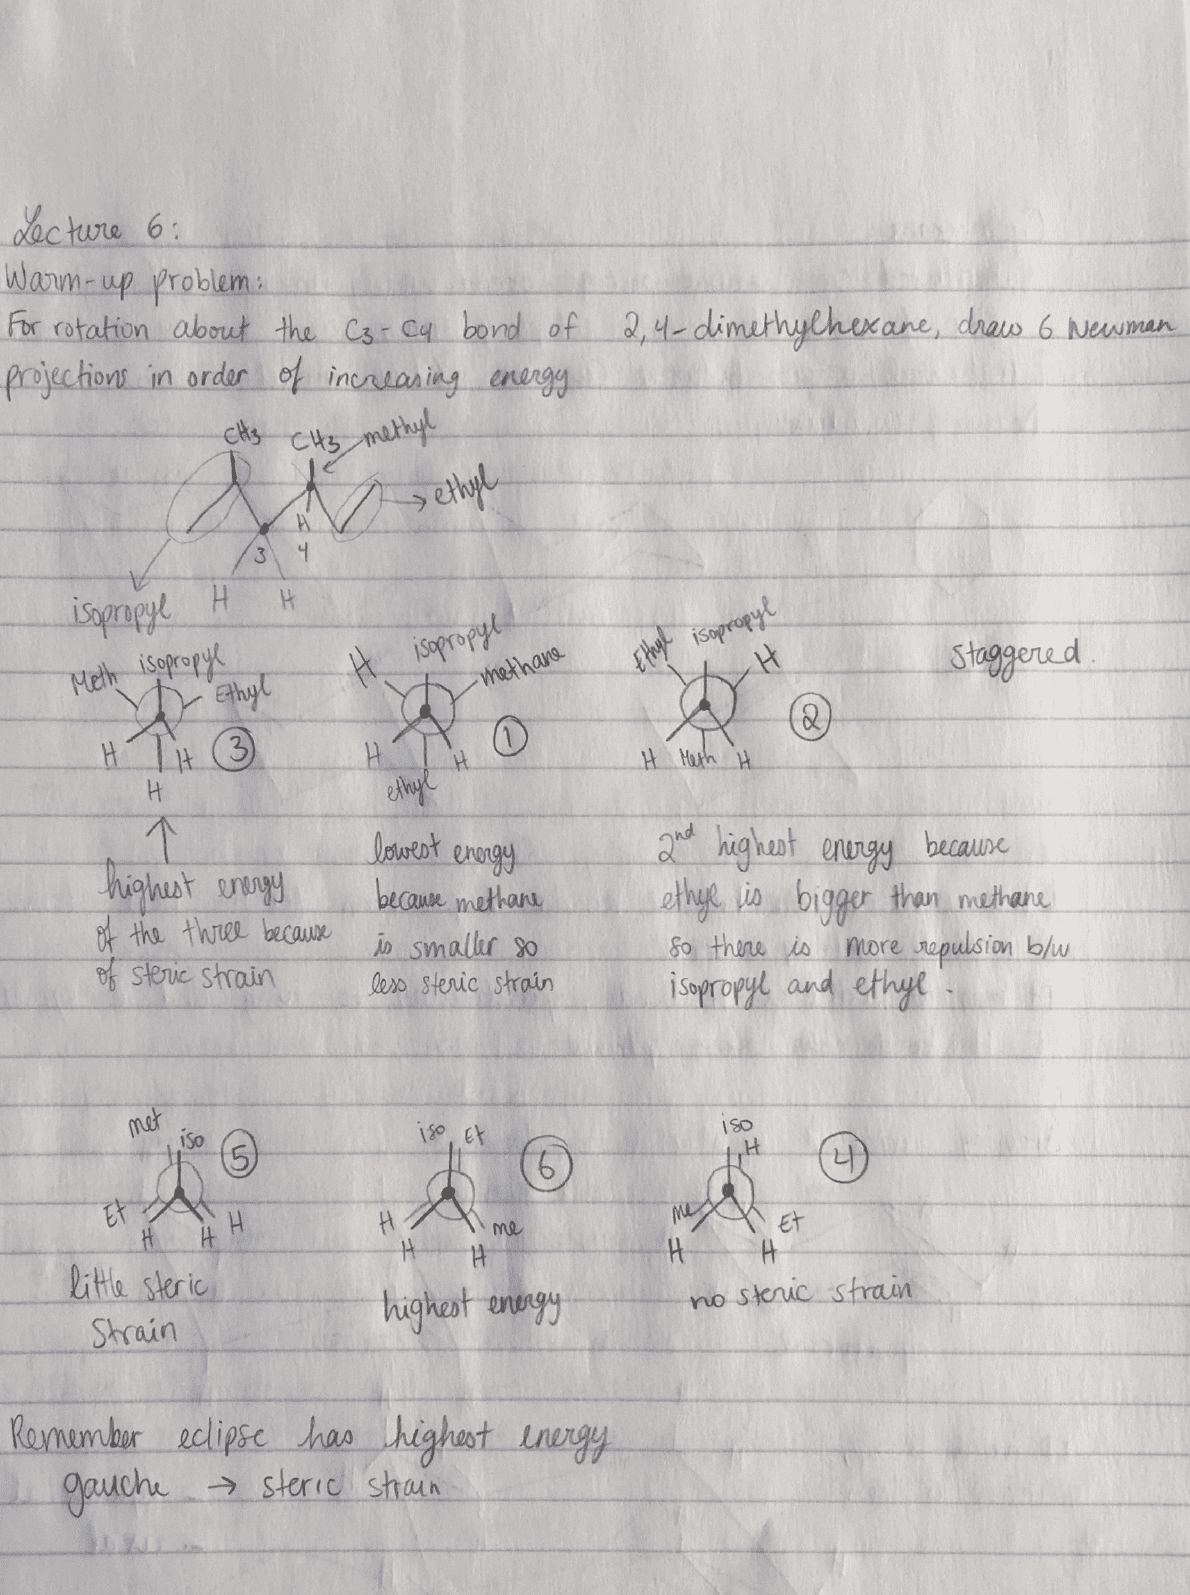 Lecture 6:
Warm-up problem:
For rotation about the C3-C4 bond of 2,4-dimethylhexane, draw 6 Newman
projections in order of increasing energy
CH3 CH3 methyl
ethyl
H
3 4
isopropyl H H
Meth isopropyl Ethyl
H H 3
H
H isopropyl methane
H H 1
ethyl
Ethyl isopropyl H
2
H Meth H
Staggered.
highest energy
of the three because
of steric strain
lowest energy
because methane
is smaller so
less steric strain
2nd highest energy because
ethyl is bigger than methane
so there is more repulsion b/w
isopropyl and ethyl.
met iso 5
Et H H H
little steric
strain
iso Et 6
H H H me
highest energy
iso H 4
me H H Et
no steric strain
Remember eclipse has highest energy
gauche → steric strain